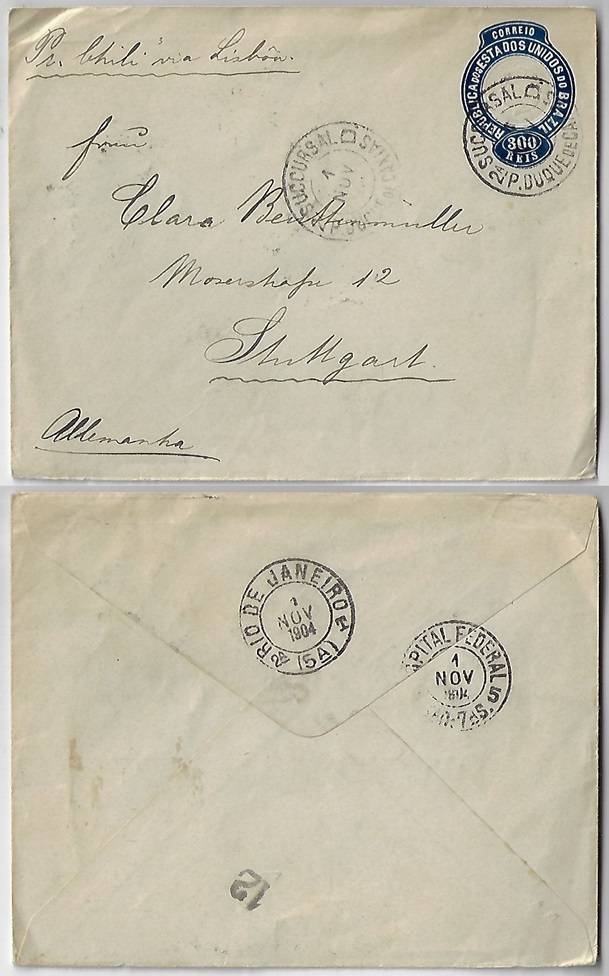 Pr. Chili via Lisbôa.
CORREIO
REPUBLICA DOS ESTADOS UNIDOS DO BRAZIL
300
REIS
SUCCURSAL
2A P. DUQUE DE CA
SUCCURSAL
1
NOV
Clara
Moserstraße 12
Stuttgart.
Allemanha
RIO DE JANEIRO
1
NOV
1904
(5A)
PITAL FEDERAL
1
NOV
1904
12